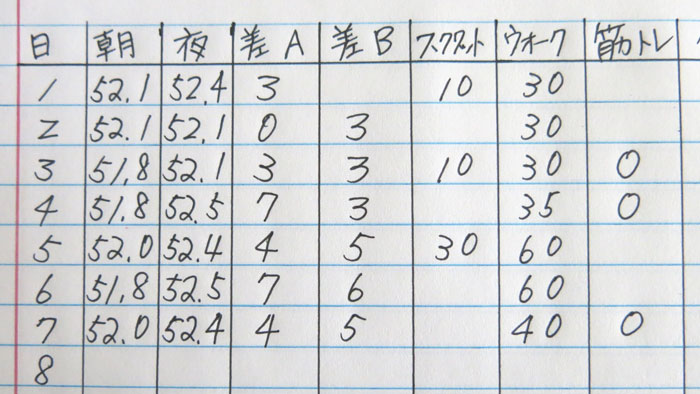 日 朝 夜 差A 差B スクワット ウォーク 筋トレ
1 52.1 52.4 3 10 30
2 52.1 52.1 0 3 30
3 51.8 52.1 3 3 10 30 0
4 51.8 52.5 7 3 35 0
5 52.0 52.4 4 5 30 60
6 51.8 52.5 7 6 60
7 52.0 52.4 4 5 40 0
8